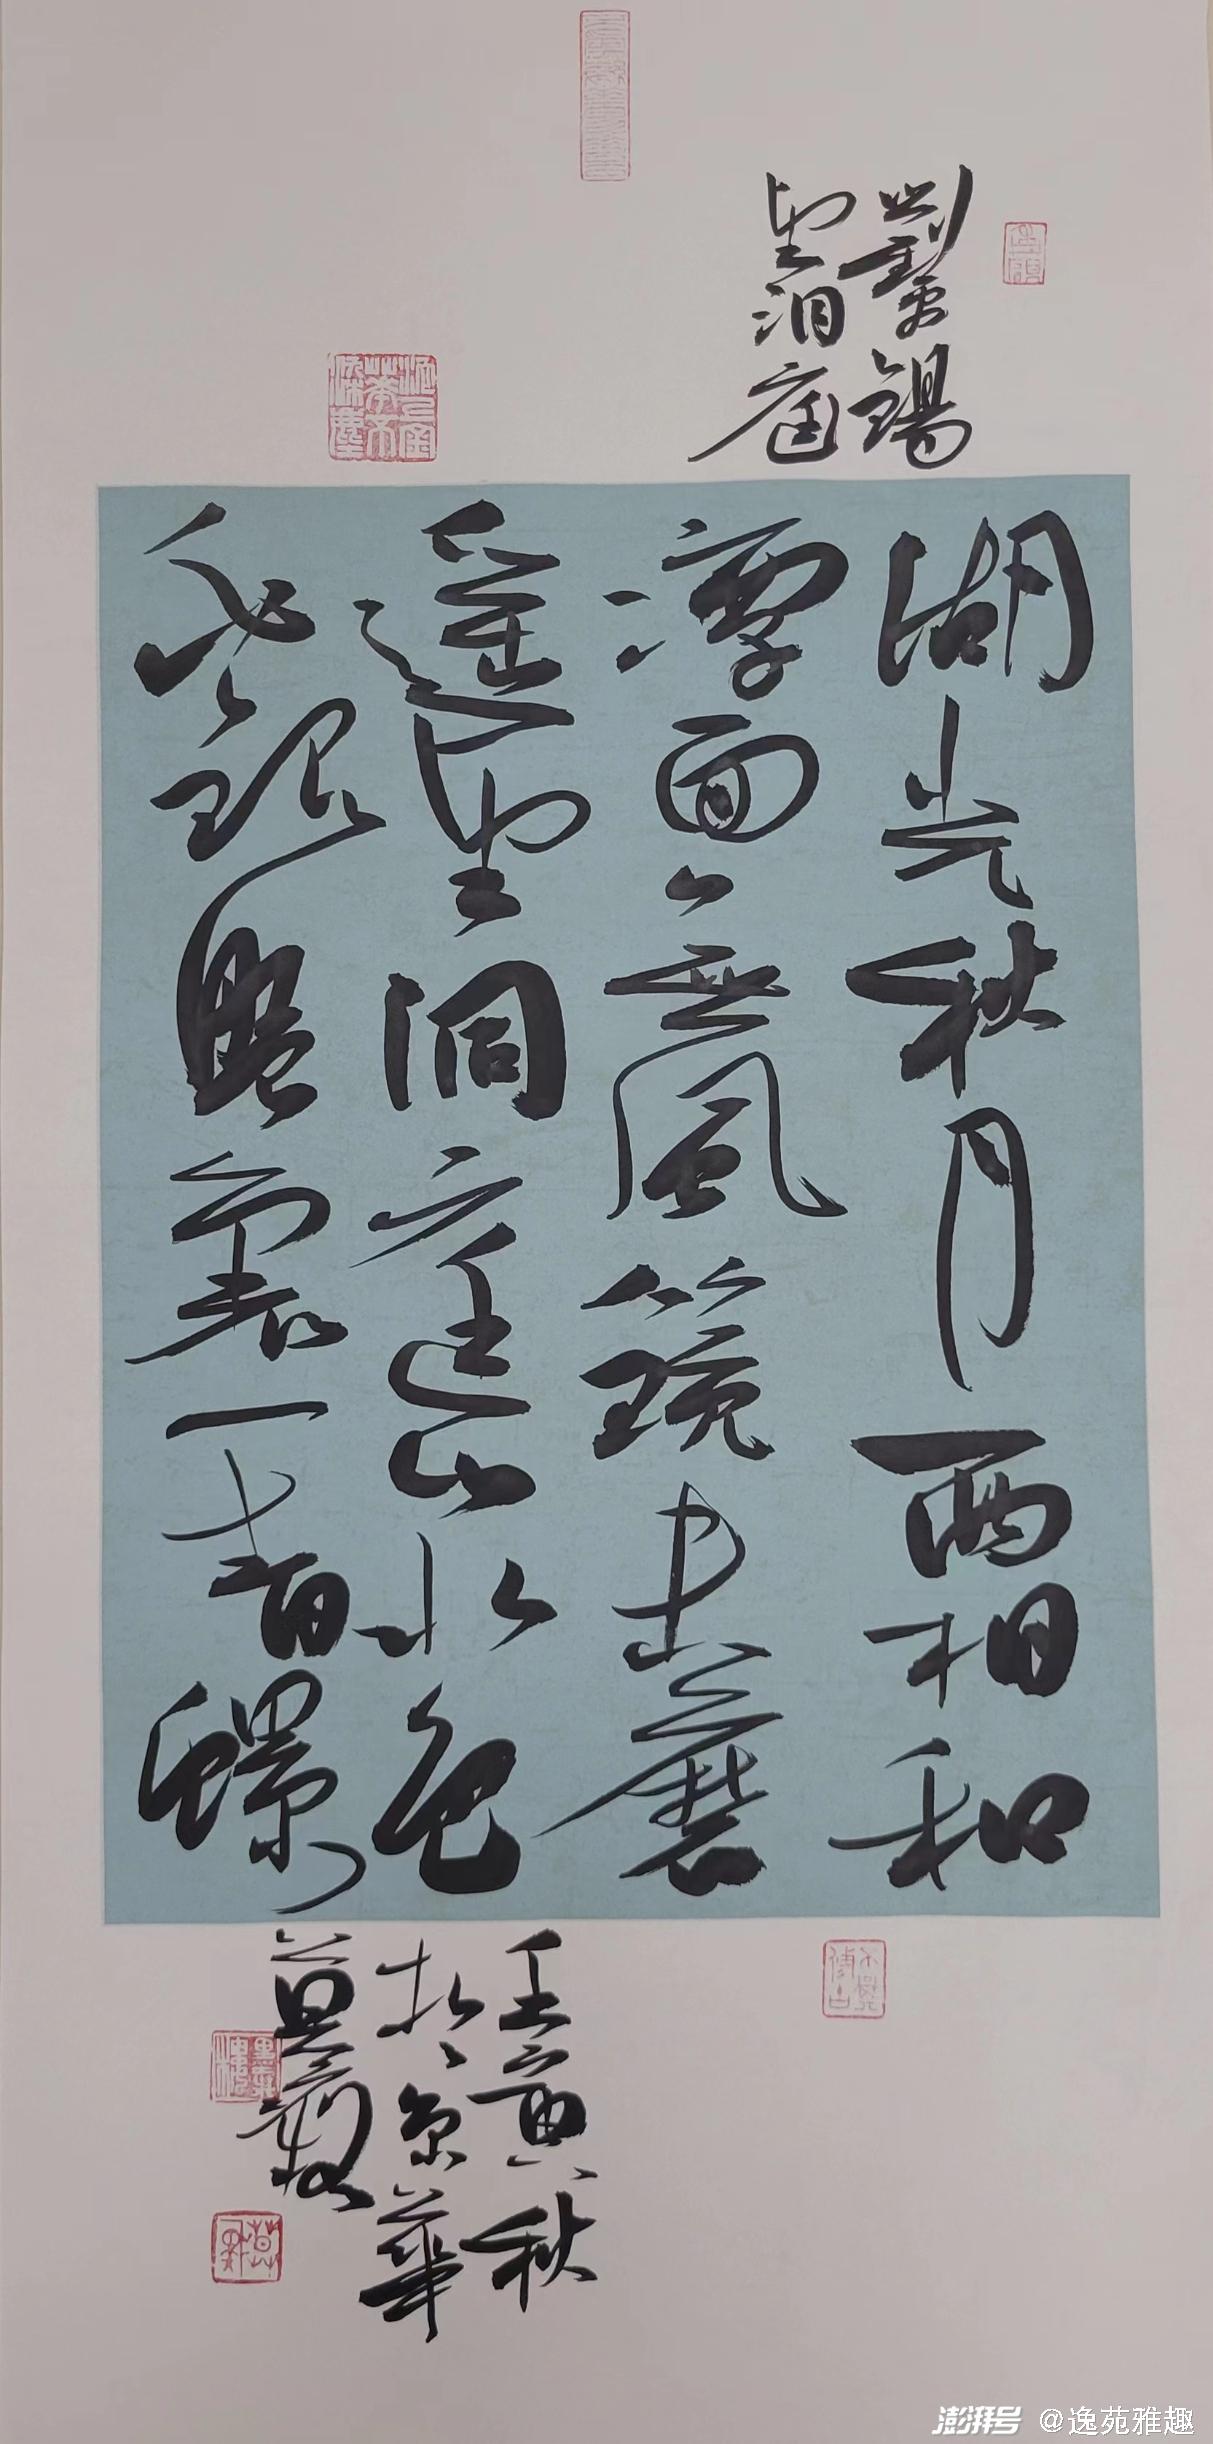 劉禹錫
望洞庭
湖光秋月兩相和
潭面無風鏡未磨
遥望洞庭山水色
白銀盤裏一青螺
壬寅秋
於京華
澎湃号 @逸苑雅趣